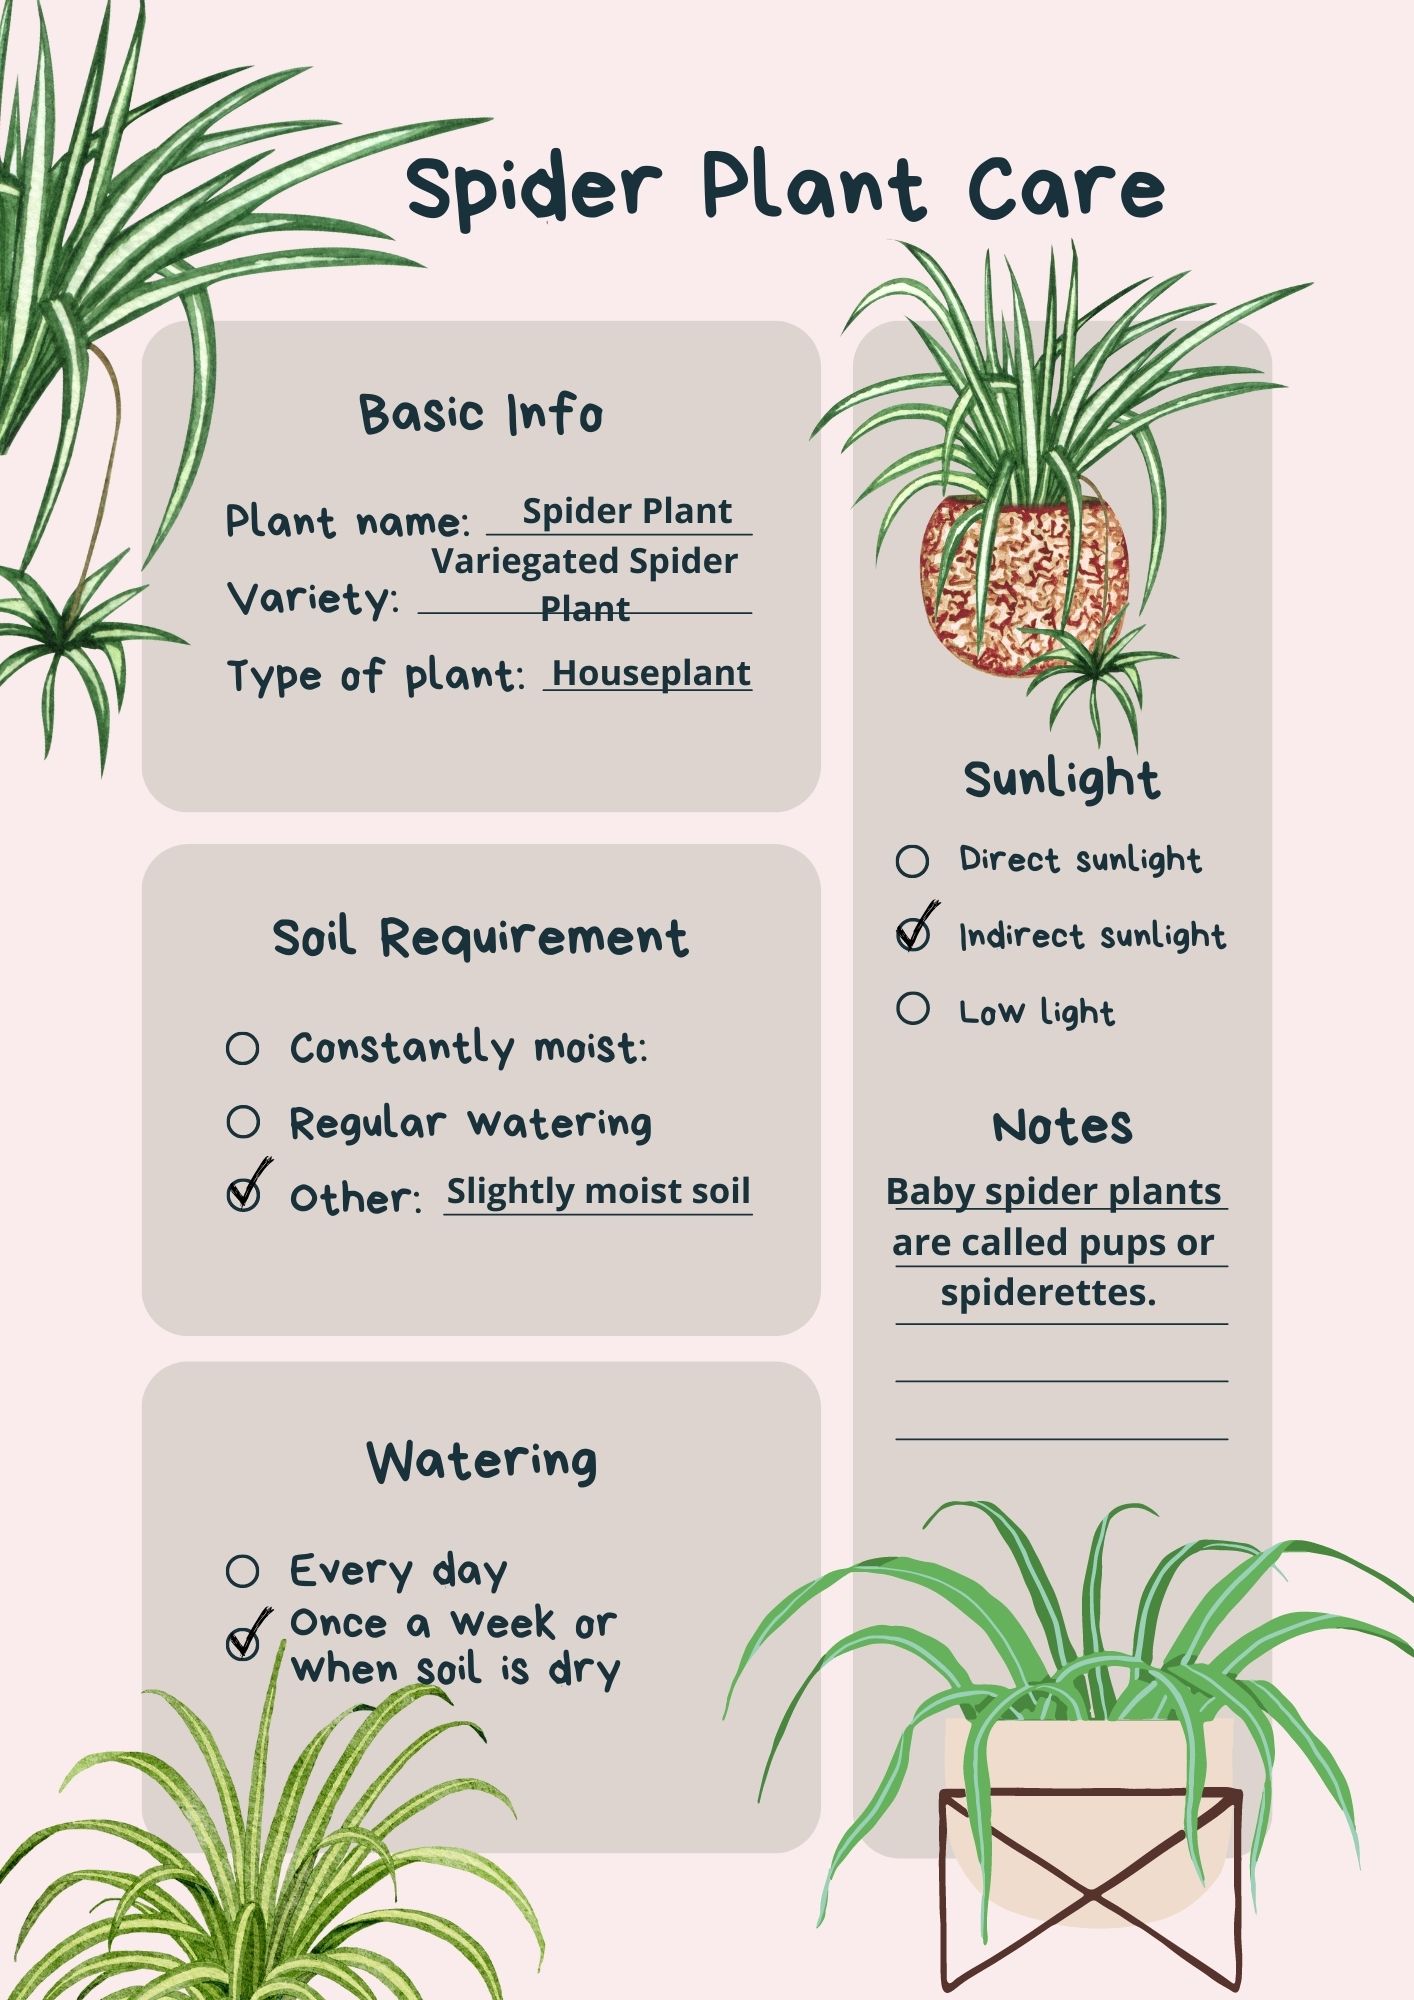 Spider Plant Care
Basic Info
Plant name: Spider Plant
Variegated Spider
Variety: Plant
Type of plant: Houseplant
Soil Requirement
Constantly moist:
Regular watering
Other: Slightly moist soil
Watering
Every day
Once a week or
when soil is dry
Sunlight
Direct sunlight
Indirect sunlight
Low light
Notes
Baby spider plants
are called pups or
spiderettes.